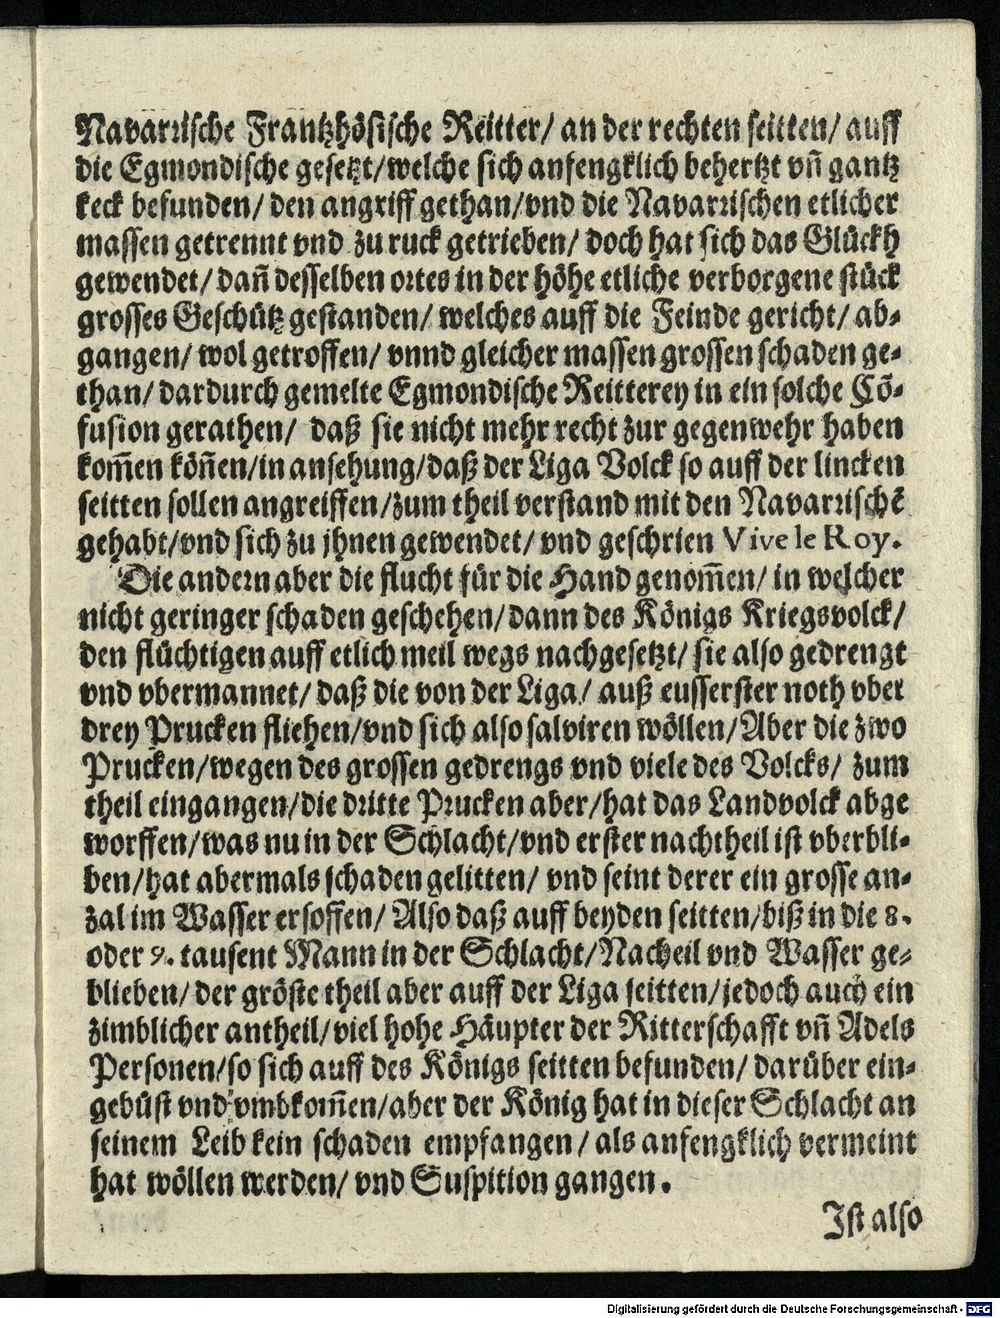 Navarꝛische Frantzhösische Reitter/ an der rechten seitten/ auff
die Egmondische gesetzt/welche sich anfengklich behertzt vñ gantz
keck befunden/ den angriff gethan/vnd die Navarꝛischen etlicher
massen getrennt vnd zu ruck getrieben/ doch hat sich das Glückh
gewendet/ dañ desselben oꝛtes in der höhe etliche verborgene stück
grosses Geschütz gestanden/ welches auff die Feinde gericht/ ab-
gangen/ wol getroffen/ vnnd gleicher massen grossen schaden ge-
than/ dardurch gemelte Egmondische Reitterey in ein solche Cõ-
fusion gerathen/ daß sie nicht mehr recht zur gegenwehr haben
kom̃en köñen/in ansehung/daß der Liga Volck so auff der lincken
seitten sollen angreiffen/zum theil verstand mit den Navarꝛischẽ
gehabt/vnd sich zu jhnen gewendet/ vnd geschrien Vive le Roy.
Die andern aber die flucht für die Hand genom̃en/ in welcher
nicht geringer schaden geschehen/dann des Königs Kriegsvolck/
den flüchtigen auff etlich meil wegs nachgesetzt/ sie also gedrengt
vnd vbermannet/ daß die von der Liga/ auß eusserster noth vber
drey Prucken fliehen/vnd sich also salviren wöllen/Aber die zwo
Prucken/wegen des grossen gedrengs vnd viele des Volcks/ zum
theil eingangen/die dꝛitte Prucken aber/hat das Landvolck abge
worffen/was nu in der Schlacht/vnd erster nachtheil ist vberbli-
ben/hat abermals schaden gelitten/ vnd seint derer ein grosse an-
zal im Wasser ersoffen/ Also daß auff beyden seitten/biß in die 8.
oder 9. tausent Mann in der Schlacht/Nacheil vnd Wasser ge-
blieben/ der gröste theil aber auff der Liga seitten/jedoch auch ein
zimblicher antheil/viel hohe Häupter der Ritterschafft vñ Adels
Personen/so sich auff des Königs seitten befunden/ darüber ein-
gebüst vnd vmbkom̃en/aber der König hat in dieser Schlacht an
seinem Leib kein schaden empfangen/ als anfengklich vermeint
hat wöllen werden/ vnd Suspition gangen.
Ist also
Digitalisierung gefördert durch die Deutsche Forschungsgemeinschaft - DFG